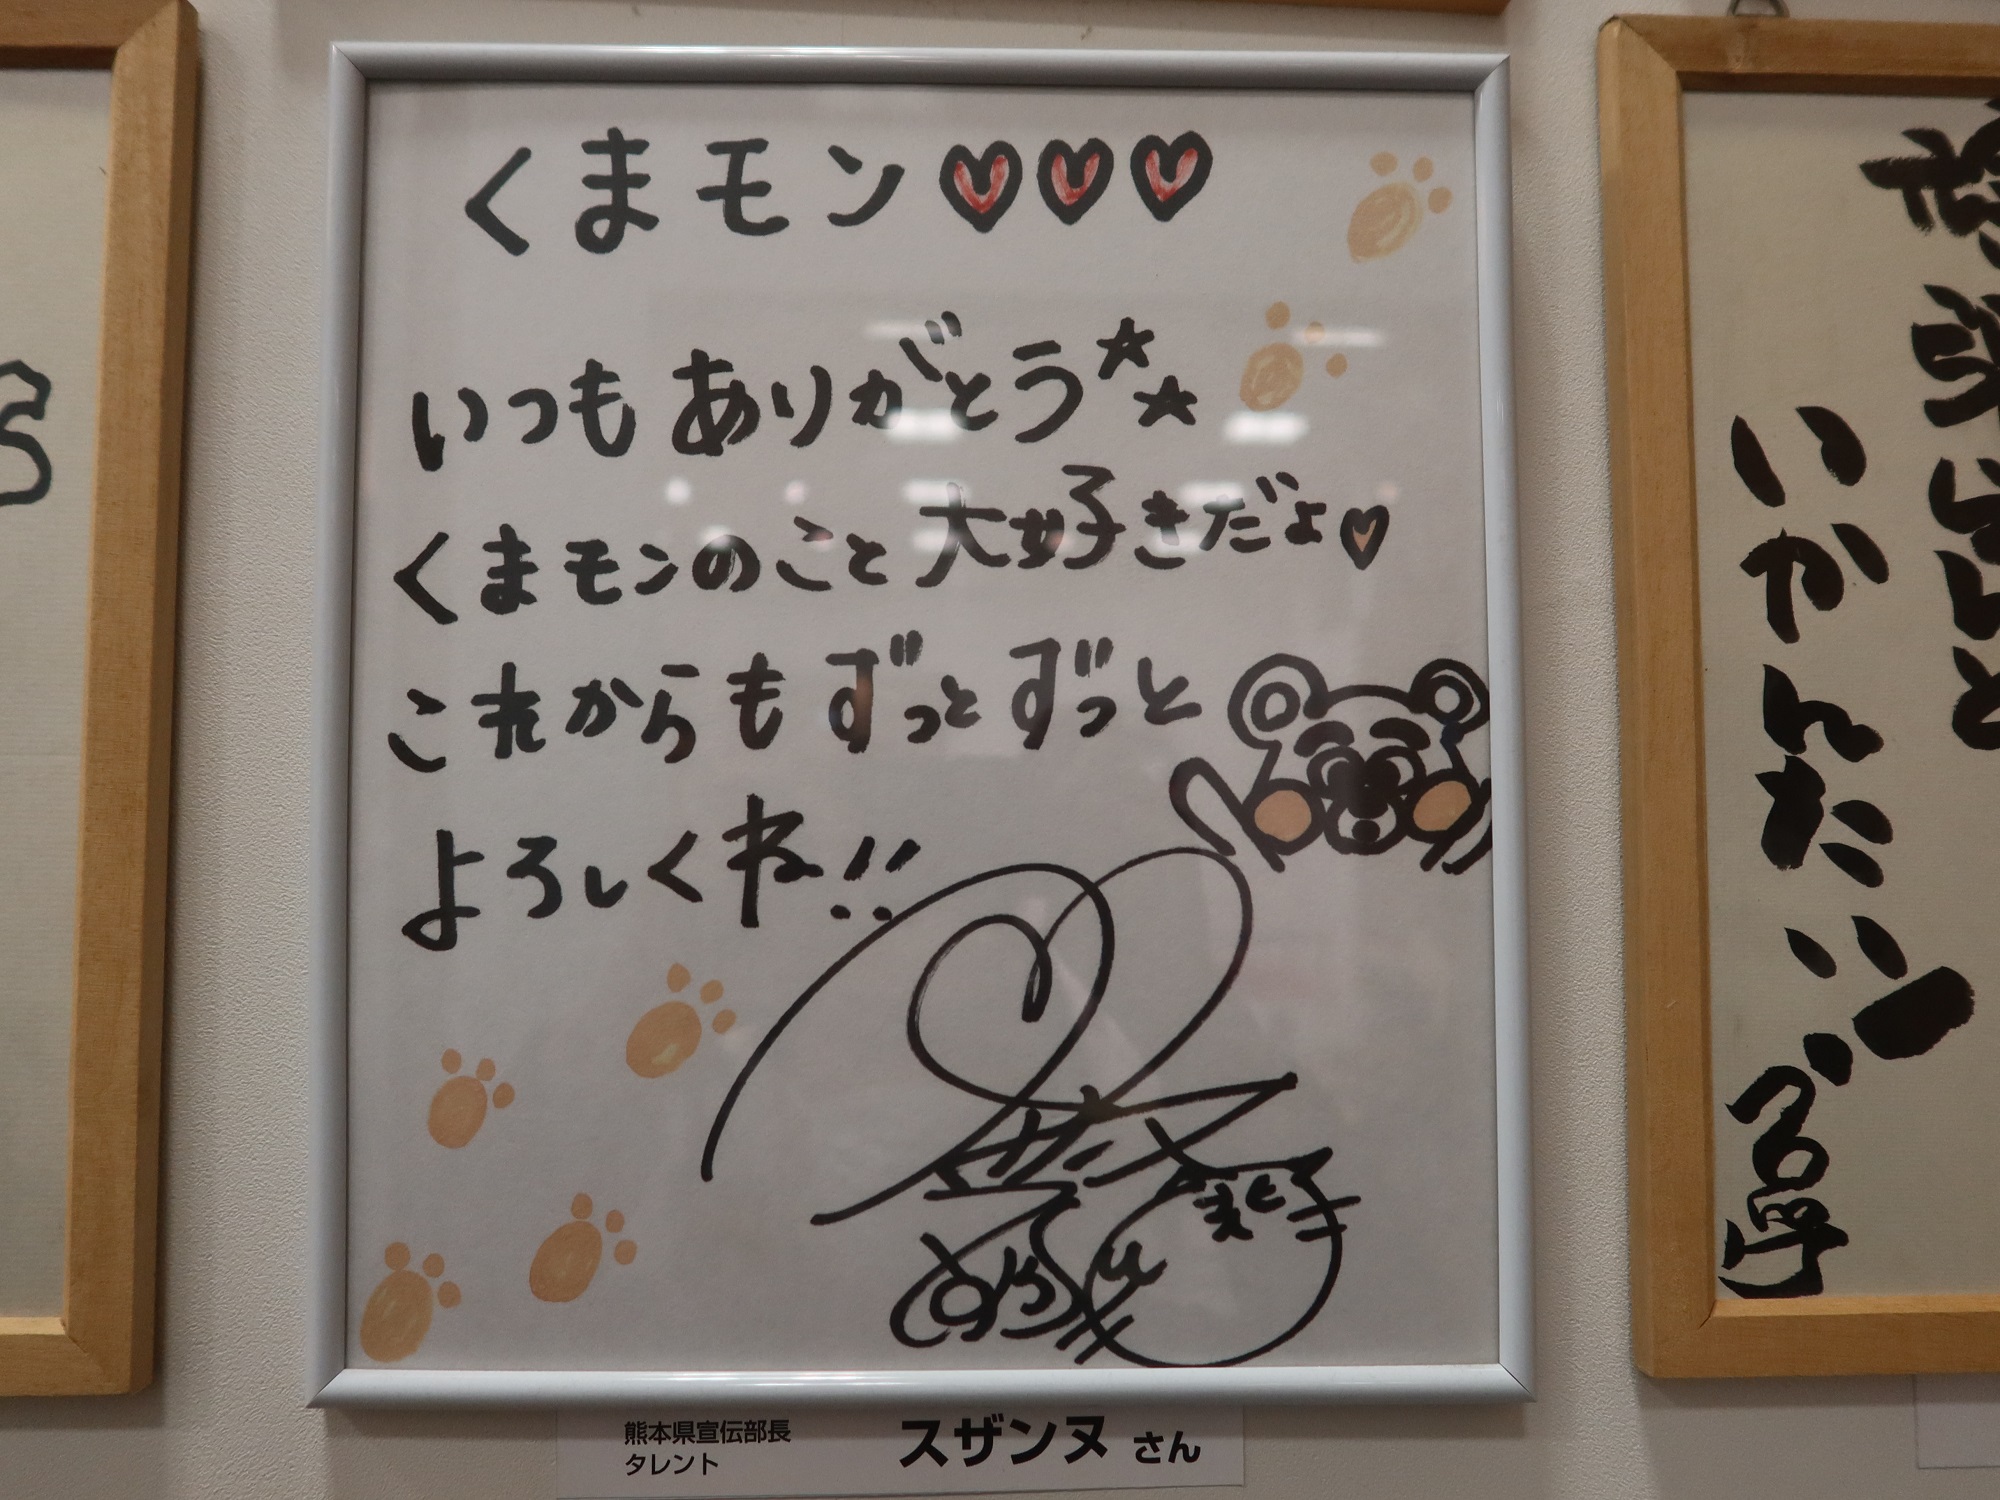 くまモン♡♡♡
いつもありがとう☆☆
くまモンのこと大好きだょ♡
これからもずっとずっと
よろしくね!!
熊本県宣伝部長
タレント
スザンヌ さん
いかんたい!